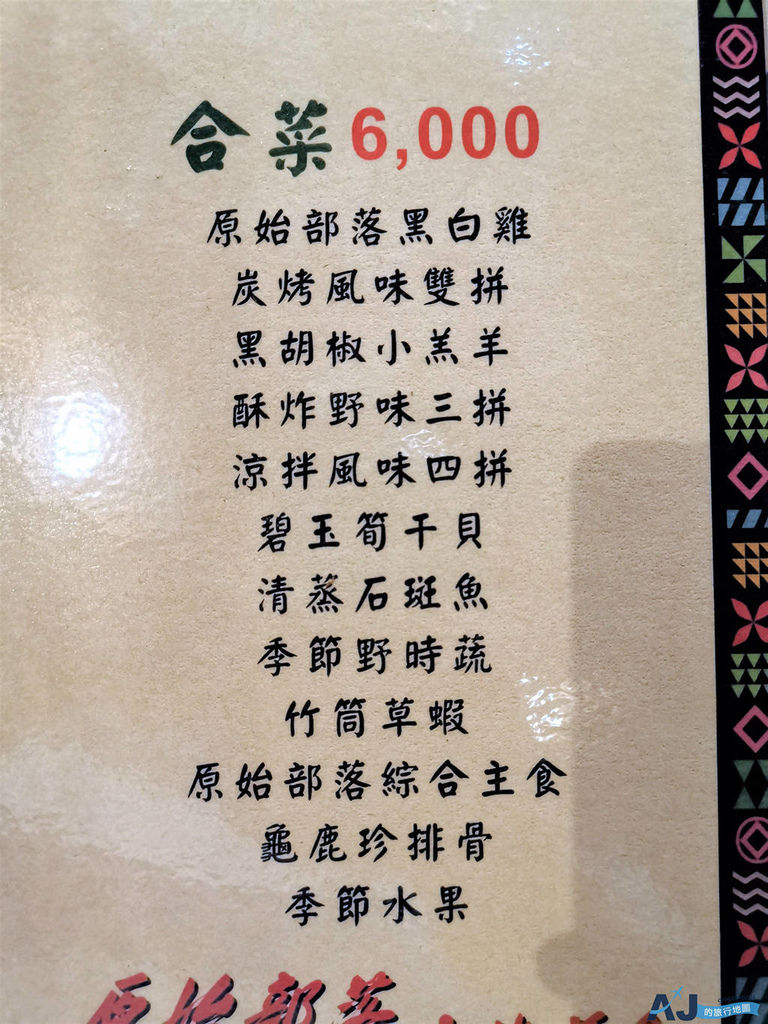 合菜 6,000
原始部落黑白雞
炭烤風味雙拼
黑胡椒小羔羊
酥炸野味三拼
涼拌風味四拼
碧玉筍干貝
清蒸石斑魚
季節野時蔬
竹筒草蝦
原始部落綜合主食
龜鹿珍排骨
季節水果
原始部落
AJ的旅行地圖